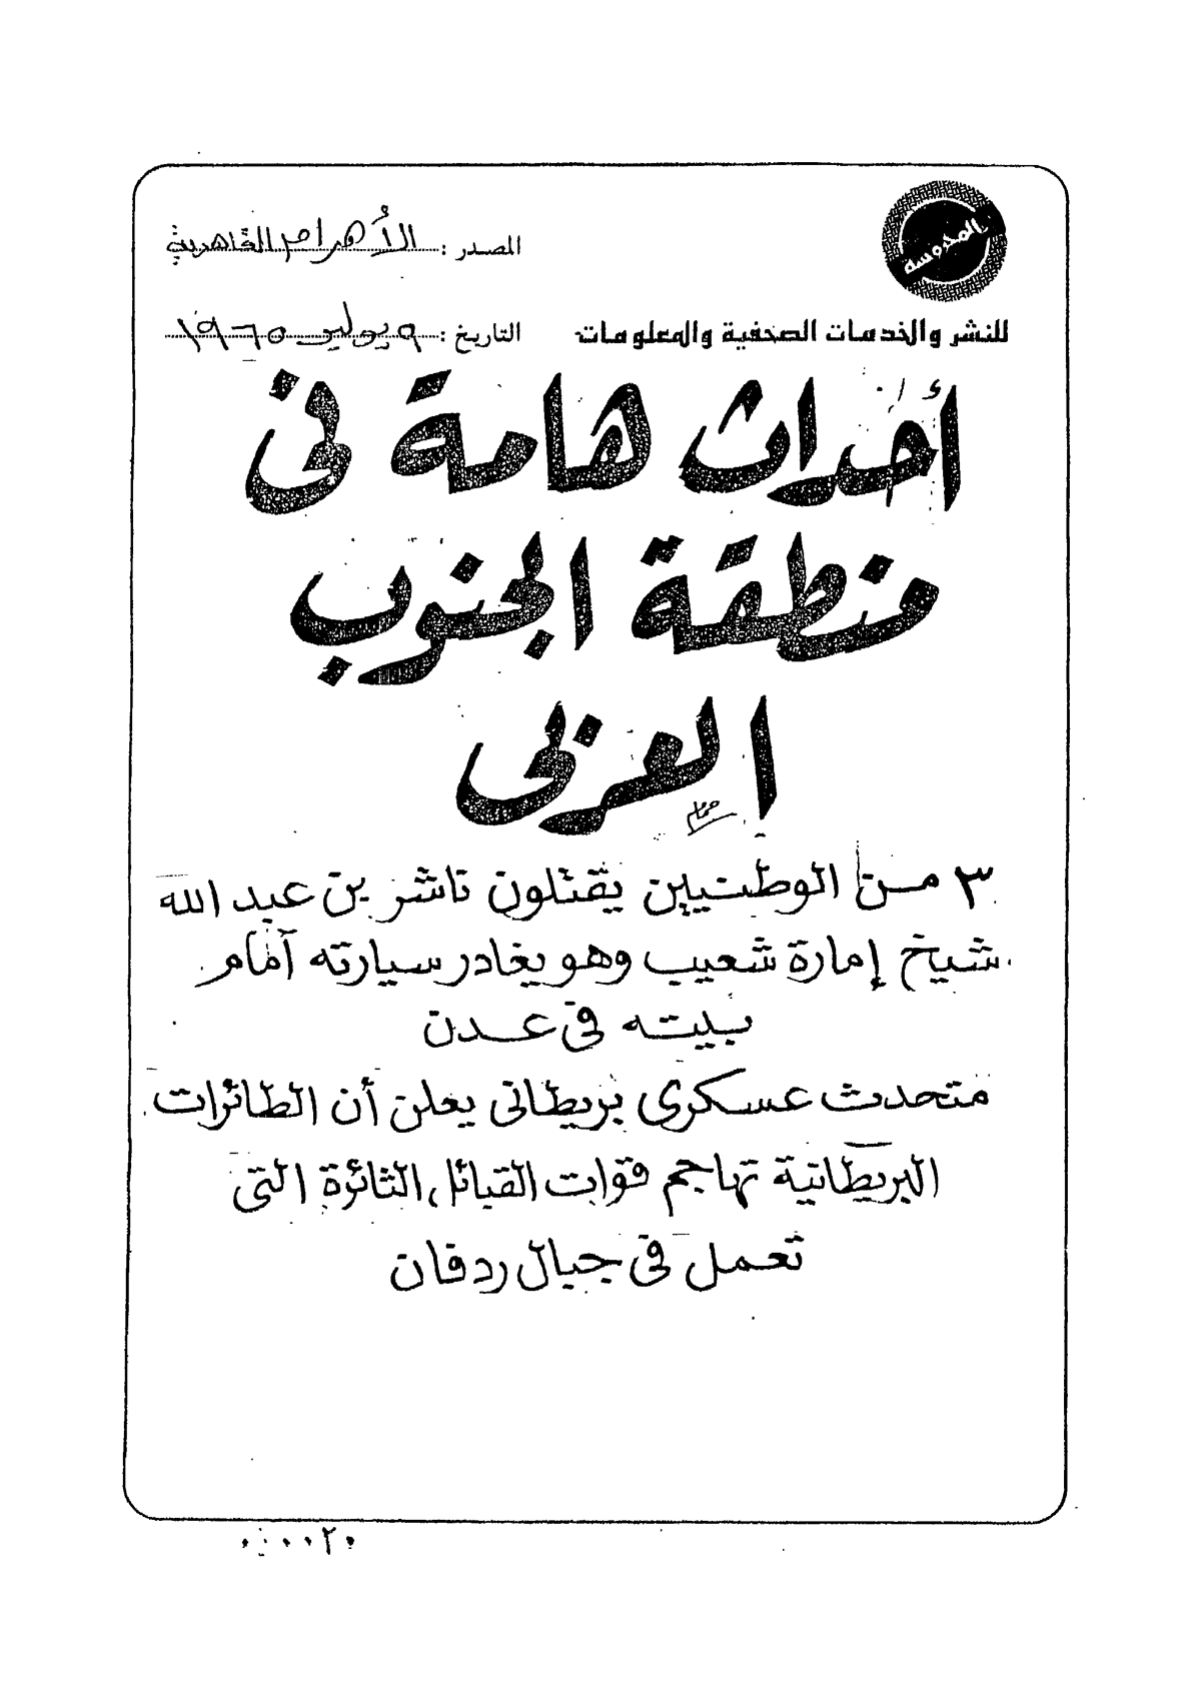 المحروسة
المصدر : الأهرام القاهرية
للنشر والخدمات الصحفية والمعلومات
التاريخ : ٩ يوليو ١٩٦٥
أحداث هامة فى
منطقة الجنوب
العربى
٣ من الوطنيين يقتلون ناشر بن عبد الله
شيخ إمارة شعيب وهو يغادر سيارته أمام
بيته فى عدن
متحدث عسكرى بريطانى يعلن أن الطائرات
البريطانية تهاجم قوات القبائل الثائرة التى
تعمل فى جبال ردفان